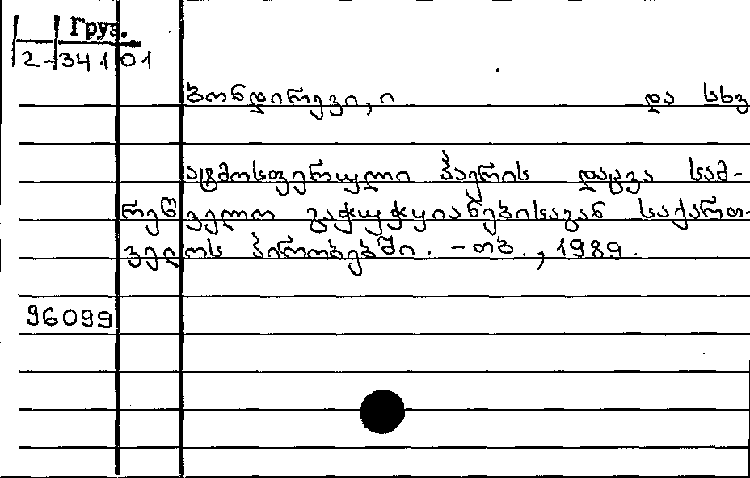 Груз.
2-341 01
ბონდირევი, ი და სხვ
ატმოსფერული ჰაერის დაცვა სამ-
რეწველო გაჭუჭყიანებისაგან საქართ-
ველოს პირობებში. - თბ., 1989.
96099